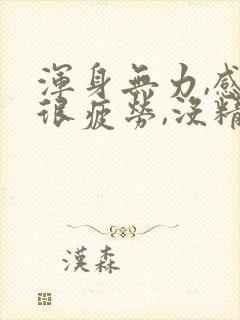 渾身無力,感
很疲勞,沒精
漢森